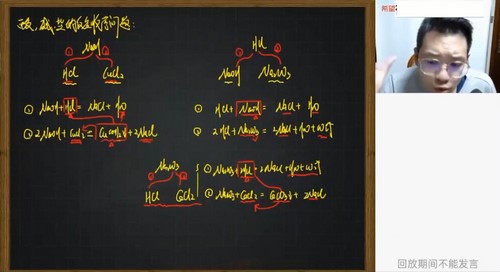 酸、碱、盐的反应顺序问题:
NaOH
① ②
HCl CuCl₂
① NaOH+HCl=NaCl+H₂O
② 2NaOH+CuCl₂=Cu(OH)₂↓+2NaCl
HCl
① ②
NaOH Na₂CO₃
① HCl+NaOH=NaCl+H₂O
② 2HCl+Na₂CO₃=2NaCl+H₂O+CO₂↑
Na₂CO₃
① ②
HCl CaCl₂
① Na₂CO₃+2HCl=2NaCl+H₂O+CO₂↑
② Na₂CO₃+CaCl₂=CaCO₃↓+2NaCl
回放期间不能发言